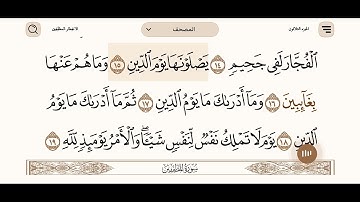 الجزء الثلاثون
المصحف
الانفطار المطففين
ٱلْفُجَّارَ لَفِى جَحِيمٍ ١٤ يَصْلَوْنَهَا يَوْمَ ٱلدِّينِ ١٥ وَمَا هُمْ عَنْهَا
بِغَآئِبِينَ ١٦ وَمَآ أَدْرَىٰكَ مَا يَوْمُ ٱلدِّينِ ١٧ ثُمَّ مَآ أَدْرَىٰكَ مَا يَوْمُ
ٱلدِّينِ ١٨ يَوْمَ لَا تَمْلِكُ نَفْسٌ لِّنَفْسٍ شَيْـًٔا وَٱلْأَمْرُ يَوْمَئِذٍ لِّلَّهِ ١٩
سُورَةُ المُطَفِّفِينَ